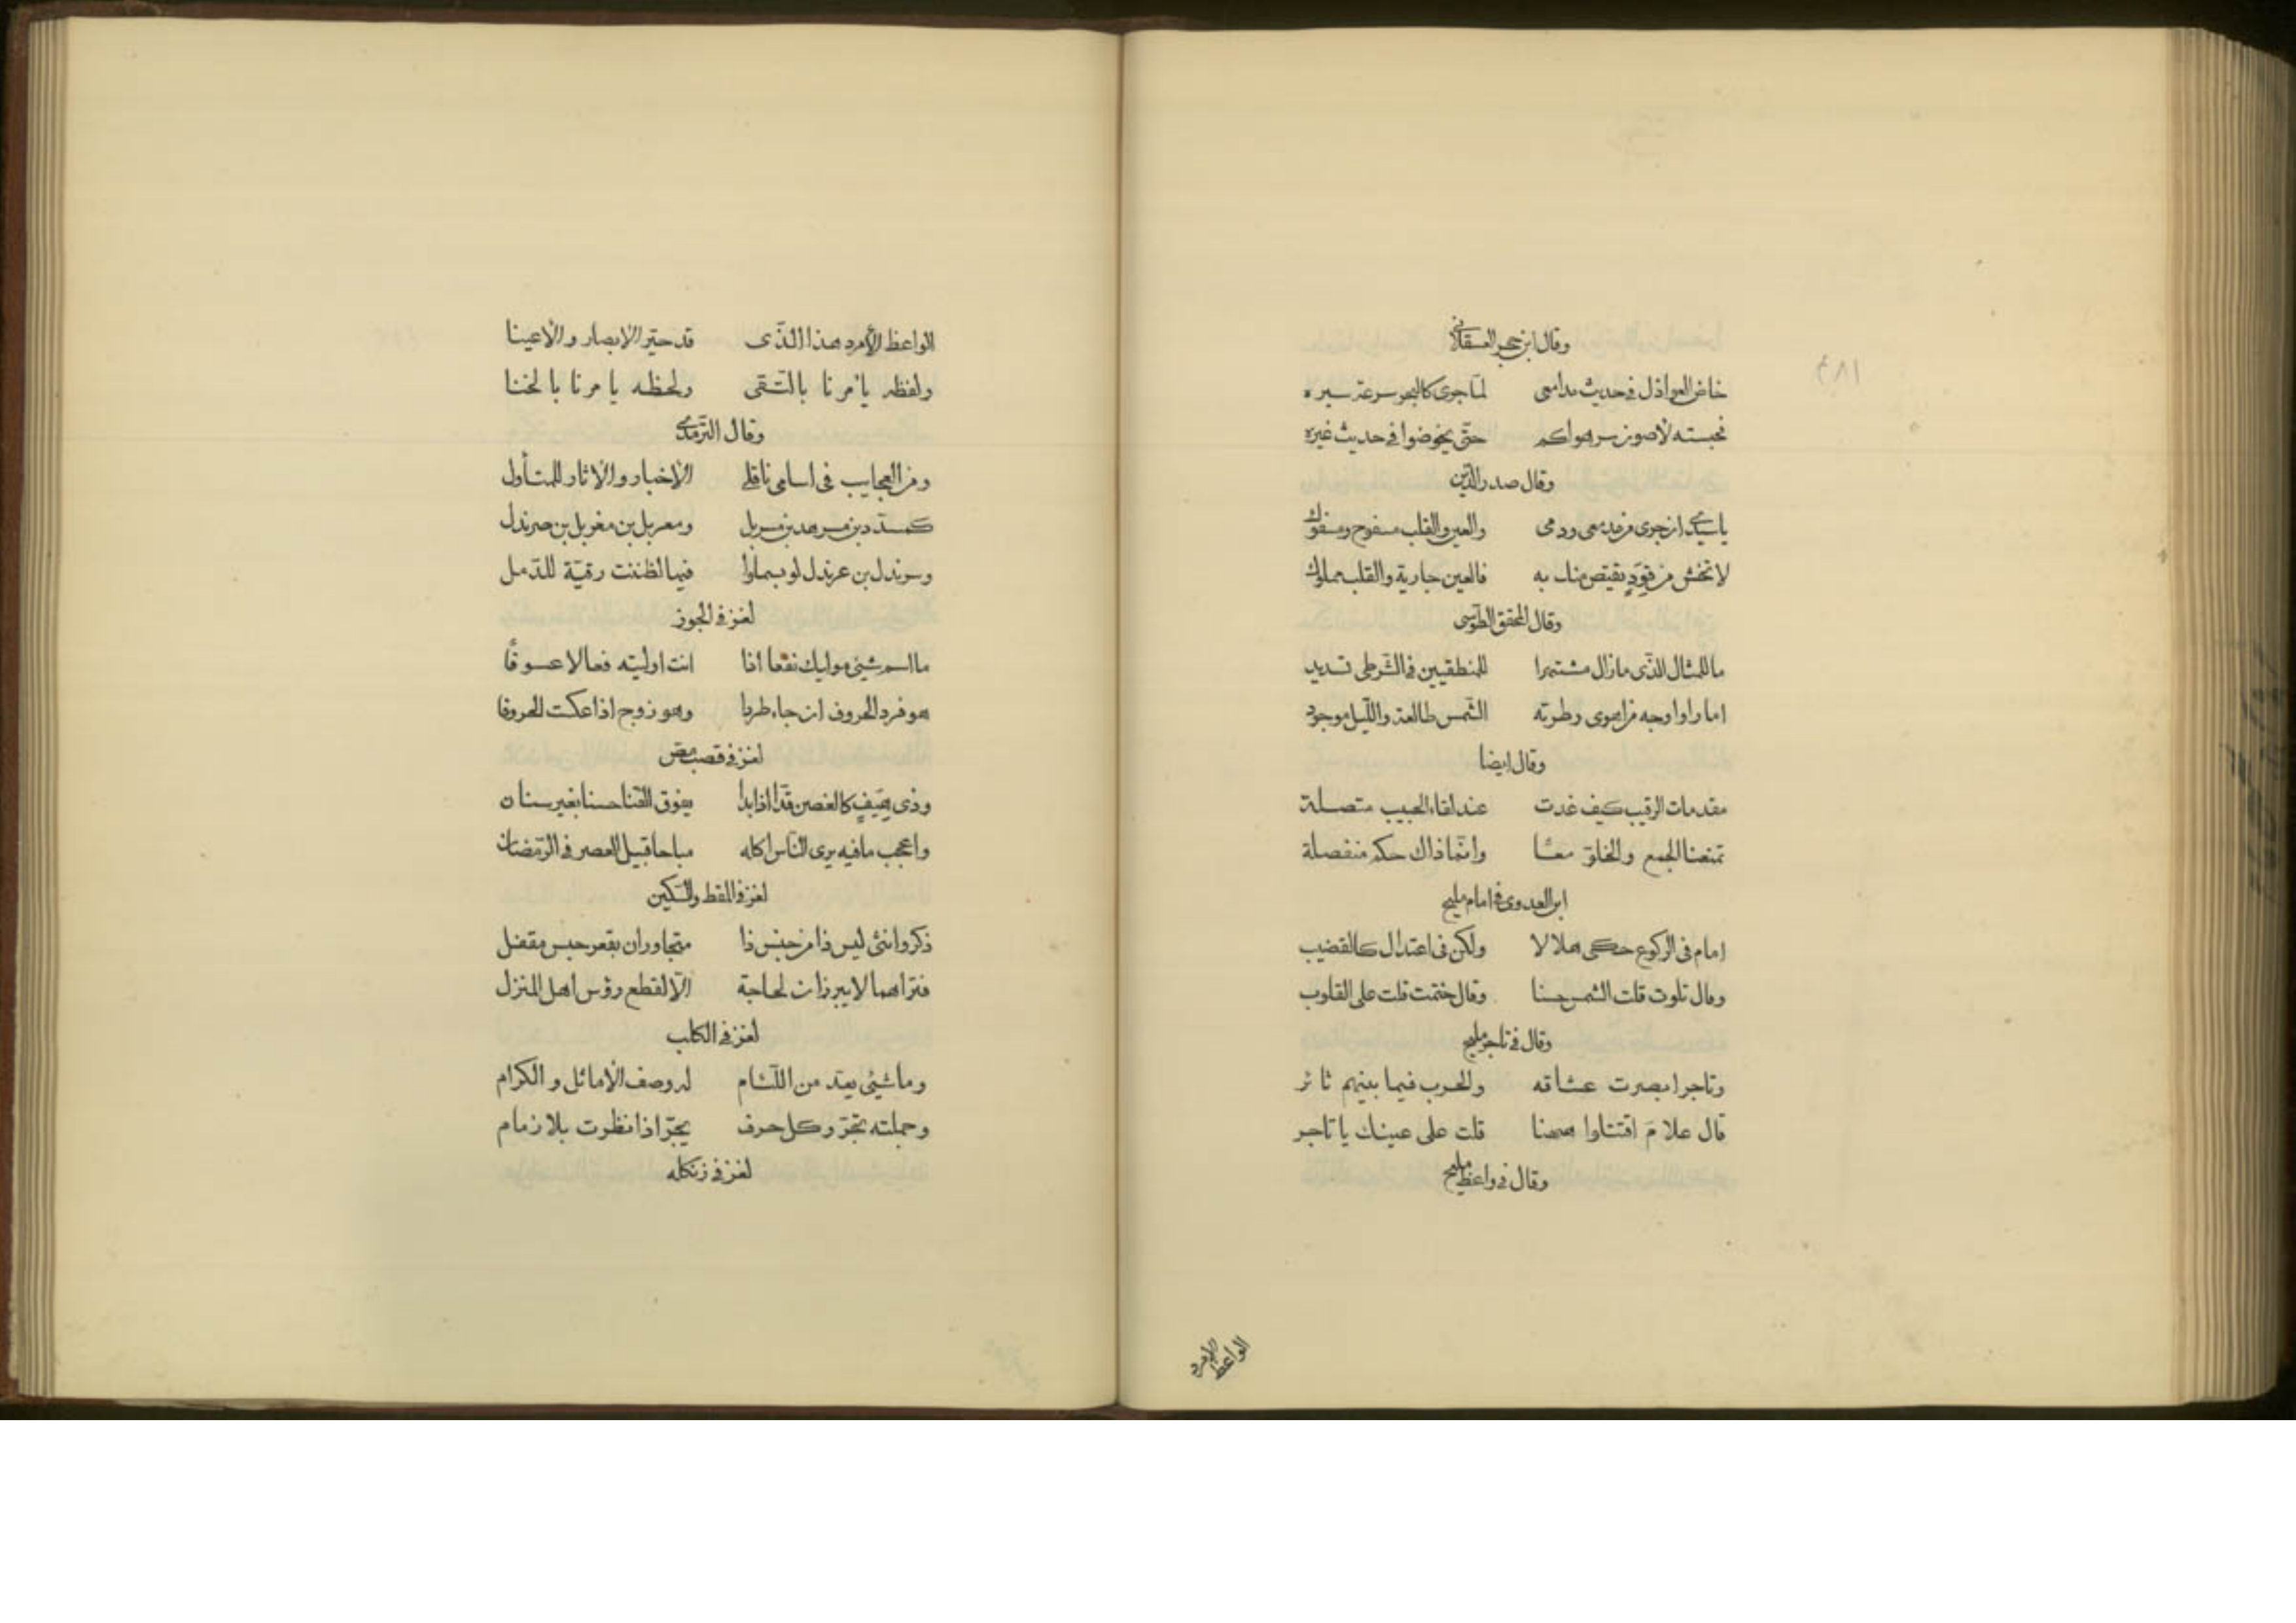 وقال ابن حجر العسقلانی
خاض العواذل فی حدیث مدامعی لمّا جری کالبحر سرعة سیره
فحبسته لاصون سر هواکم حتّی یخوضوا فی حدیث غیره
وقال صدر الدّین
یا سیّدی ان جری من مدمعی ودمی والعین والقلب مسفوح ومسفوك
لا تخش من قودٍ یقتص منك به فالعین جاریة والقلب مملوك
وقال المحقق الطّوسی
ما للمثال الّذی ما زال مشتهرا للمنطقیین فی الشّرطی تسدید
اما راوا وجه من اهوی وطرته الشّمس طالعة واللّیل موجود
وقال ایضا
مقدمات الرقیب کیف غدت عند لقاء الحبیب متصلة
تمنعنا الجمع والخلوّ معًا وانّما ذاك حکم منفصلة
ابن العدوی فی امام ملیح
امام فی الرکوع حکی هلالا ولکن فی اعتدال کالقضیب
وقال تلوت قلت الشمس حسنا وقال ختمت قلت علی القلوب
وقال فی تاجر ملیح
وتاجر ابصرت عشاقه والحرب فیما بینهم ثائر
قال علامَ اقتتلوا ههنا قلت علی عینك یا تاجر
وقال فی واعظ ملیح
الواعظ الامرد
١٨٤
الواعظ الأمرد هذا الّذی قد حیّر الابصار والاعینا
ولفظه یأمرنا بالتّقی ولحظه یامرنا بالخنا
وقال التّرمذی
ومن العجایب فی اسامی ناقلی الاخبار والاثار للمتأول
کمسدّد بن مسرهد بن مسربل ومعربل بن مغربل بن صرندل
وسرندل بن عرندل لو بسملوا فیها لظننت رقیّة للدّمل
لغز فی الجوز
ما اسم شیٔ مولیك نفعا اذا انت اولیته فعالا عسوفًا
هو فرد الحروف ان جاء طردا وهو زوج اذا عکست الحروفا
لغز فی قصب مص
وذی هیفٍ کالغصن قدّا اذا بدا یفوق القنا حسنا بغیر سنان
واعجب ما فیه یری النّاس اکله مباحا قبیل العصر فی الرّمضان
لغز فی المقط والسّکین
ذکر وانثی لیس ذا من جنس ذا متجاوران بقعر حبس مقفل
فتراهما لا یبرزان لحاجة الّا لقطع رؤس اهل المنزل
لغز فی الکلب
وما شیٔ یعدّ من اللّئام له وصف الأماثل والکرام
وجملته تجرّ وکل حرف یجرّ اذا نظرت بلا زمام
لغز فی زنکله